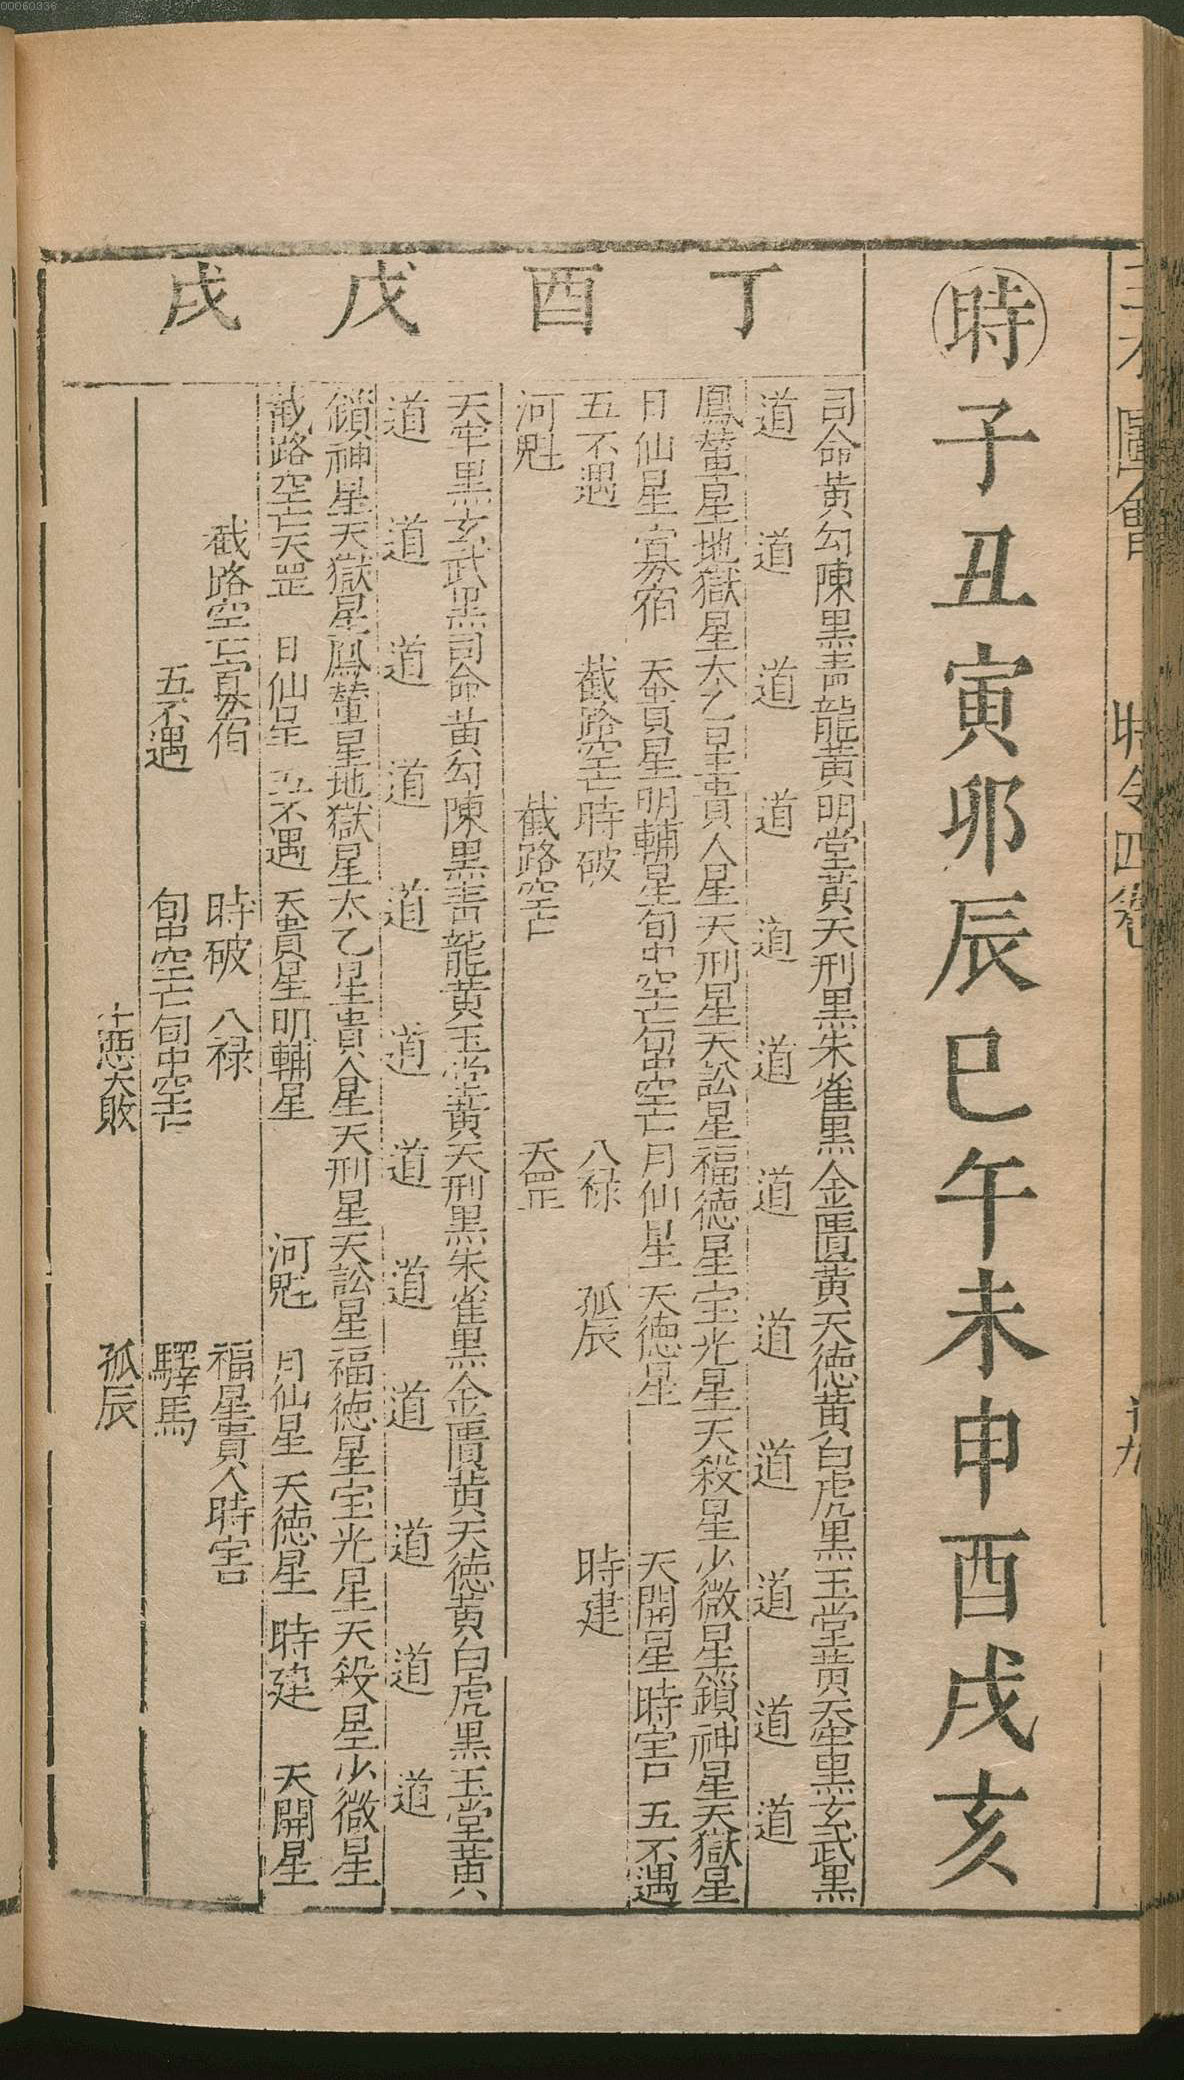 00060336
圖會
時令四卷
時子丑寅卯辰巳午未申酉戌亥
丁酉
司命黄勾陳黒青龍黄明堂黄天刑黒朱雀黒金匱黄天徳黄白虎黒玉堂黄天牢黒玄武黒
道道道道道道道道道道道道
鳳輦星地獄星太乙星貴人星天刑星天訟星福徳星宝光星天殺星少微星鎖神星天獄星
日仙星寡宿天貴星明輔星旬中空亡旬中空亡月仙星天徳星天開星時害五不遇
五不遇截路空亡時破八禄孤辰時建
河魁截路空亡天罡
戊戌
天牢黒玄武黒司命黄勾陳黒青龍黄玉堂黄天刑黒朱雀黒金匱黄天徳黄白虎黒玉堂黄
道道道道道道道道道道道道
鎖神星天獄星鳳輦星地獄星太乙星貴人星天刑星天訟星福徳星宝光星天殺星少微星
截路空亡天罡日仙星五不遇天貴星明輔星河魁月仙星天徳星時建天開星
截路空亡寡宿時破八禄福星貴人時害
五不遇旬中空亡旬中空亡驛馬
十悪大敗孤辰